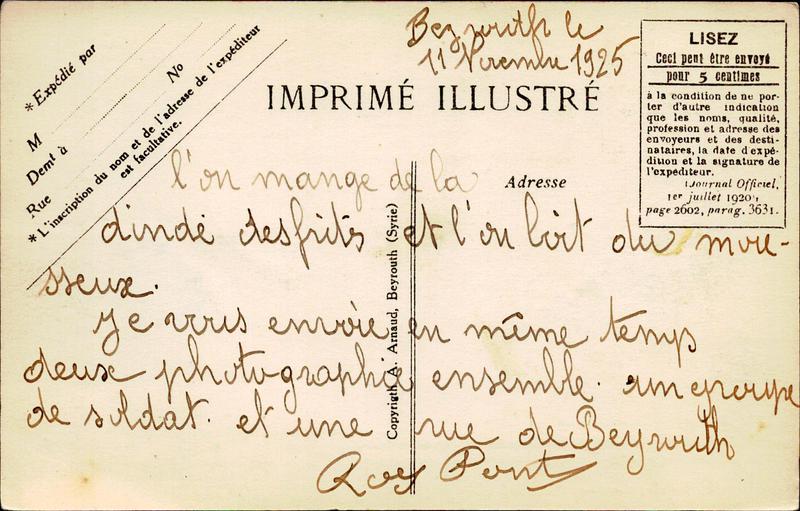 Beyrouth le
11 Novembre 1925
* Expédié par
M
No
Demt à
Rue
* L'inscription du nom et de l'adresse de l'expéditeur
est facultative.
IMPRIMÉ ILLUSTRÉ
LISEZ
Ceci peut être envoyé
pour 5 centimes
à la condition de ne por-
ter d'autre indication
que les noms, qualité,
profession et adresse des
envoyeurs et des desti-
nataires, la date d'expé-
dition et la signature de
l'expéditeur.
(Journal Officiel,
1er juillet 1920,
page 2602, parag. 3631.
Adresse
l'on mange de la
dindé des frits et l'on boit du mou-
sseux.
Je vous envoie en même temps
deux photographie ensemble. un groupe
de soldat. et une rue de Beyrouth
Roy Pont
Copyrigth A. Arnaud, Beyrouth (Syrie)